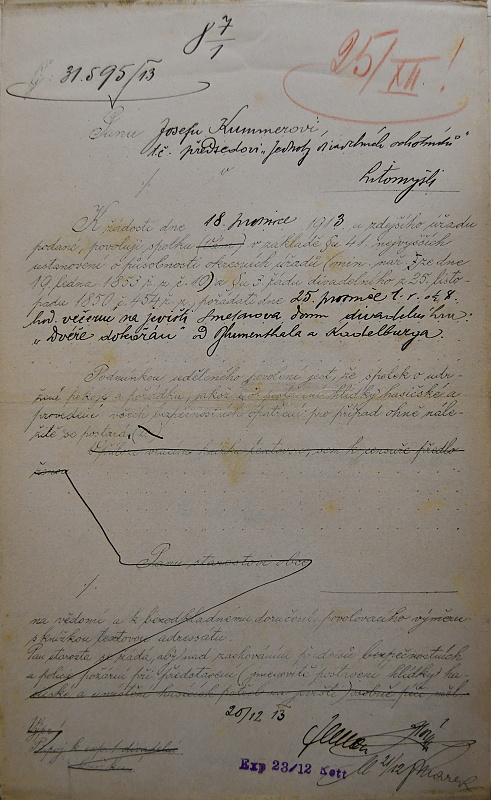 8 7/1
25/XII!
31.595/13
Panu Josefu Kummerovi,
t.č. předsedovi „Jednoty divadelních ochotníků"
v
Litomyšli
K žádosti dne 18. prosince 1913 u zdejšího úřadu
podané, povoluji spolku v základě §u 41. nejvyšších
ustanovení o působnosti okresních úřadů (min. nař. ze dne
19. ledna 1853 ř. z. č. 10) a §u 3. řádu divadelního z 25. listo-
padu 1850 č. 454 ř. z., pořádati dne 25. prosince t. r. od 8.
hod. večerní na jevišti Smetanova domu divadelní hru:
„Dvéře dokořán" od Blumenthala a Kadelburga.
Podmínkou uděleného povolení jest, že spolek o udr-
žení pokoje a pořádku, jakož i o postavení hlídky hasičské a
provedení všech bezpečnostních opatření pro případ ohně nále-
žitě se postará.
knížka textová, sem k censuře předlo-
žená
Panu starostovi obce
na vědomí a k bezodkladnému doručení povolovacího výměru
s knížkou textovou adressatu.
Pan starosta se žádá, aby nad zachováním předpisů bezpečnostních
a policie požární při představení (jmenovitě postavení hlídky ha-
sičské a umístění hasicích potřeb na jevišti)
20/12 13
Exp 23/12 Kott
21/12